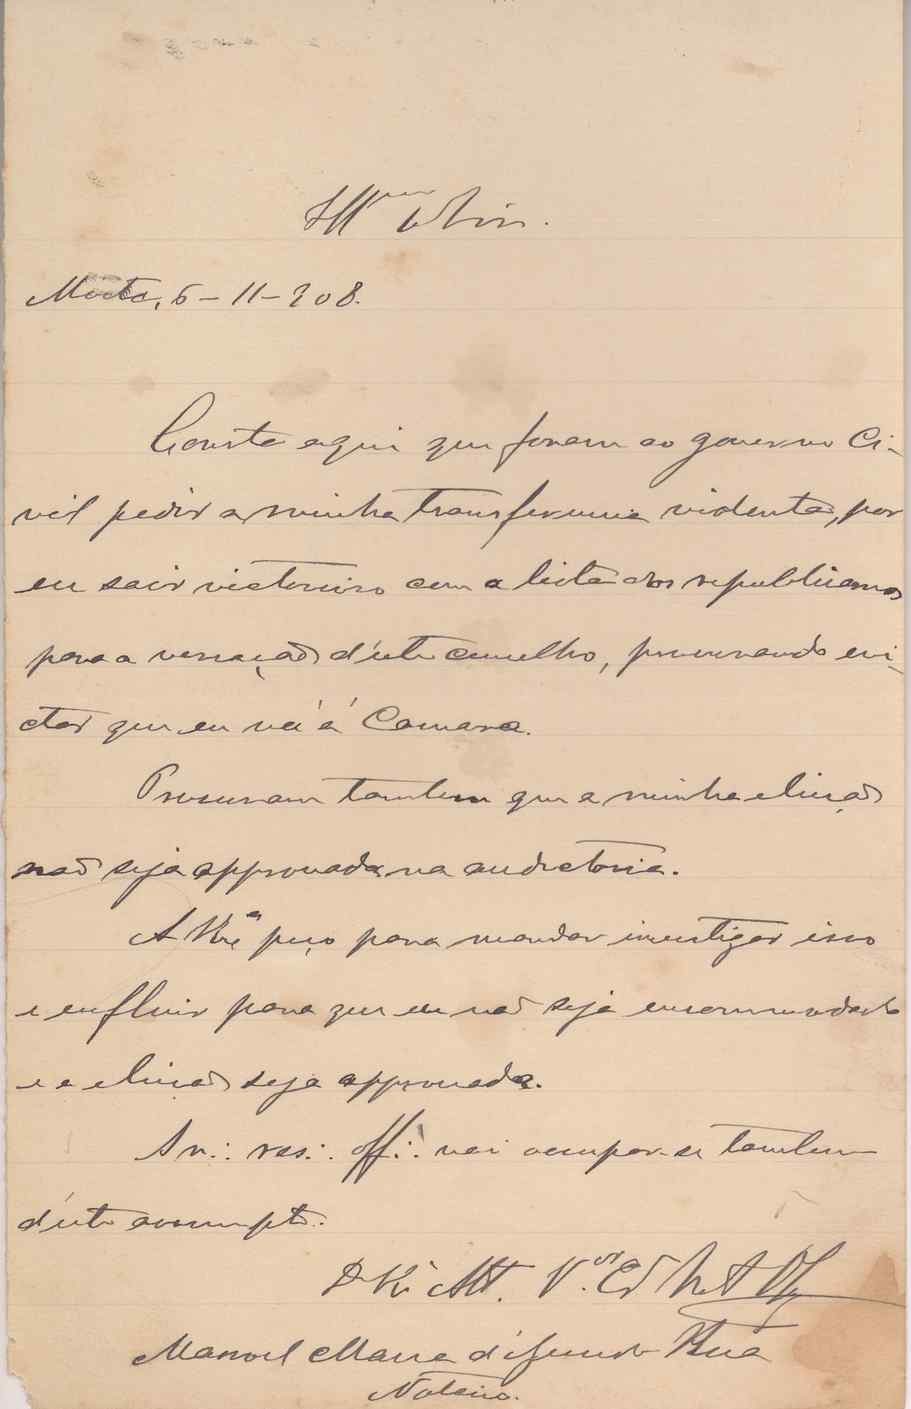 Moita, 6-11-908.
Consta aqui que foram ao governo Ci-
vil pedir a minha transferencia violenta, por
eu sair victorioso com a lista dos republicanos
para a vereação d'este concelho, procurando evi-
ctar que eu vá á Camara.
Procuram tambem que a minha eleição
não seja approvada na audictoria.
A peço para mandar investigar isso
e enfluir para que eu não seja encommodado
e a eleição seja approvada.
vai occupar-se tambem
d'este assumpto.
Manoel Maria d'
Notario.